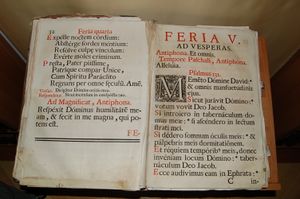 32 Feria quarta
Expelle noctem cordium:
Abstérge sordes mentium:
Resólve culpæ vinculum:
Evérte moles críminum.
Præsta, Pater piíssime,
Patríque compar Unice,
Cum Spíritu Paráclito
Regnans per omne sæculum. Amen.
Dirigátur Dómine orátio mea.
Sicut incénsum in conspéctu tuo.
Ad Magnificat, Antiphona.
Respéxit Dóminus humilitátem
meam, & fecit in me magna, qui po-
tens est.
FE-
FERIA V.
AD VESPERAS.
Antiphona. Et omnis.
Tempore Paschali, Antiphona.
Alleluia.
Psalmus 131.
MEménto Dómine David:
& omnis mansuetúdinis
ejus.
Sicut jurávit Dómino:
votum vovit Deo Jacob.
Si introíero in tabernáculum do-
mus meæ: si ascéndero in lectum
strati mei.
Si dédero somnum óculis meis: &
pálpebris meis dormitatiónem.
Et réquiem tempóribus meis, donec
invéniam locum Dómino:
tabernáculum Deo Jacob.
Ecce audívimus eam in Ephrata:
in-